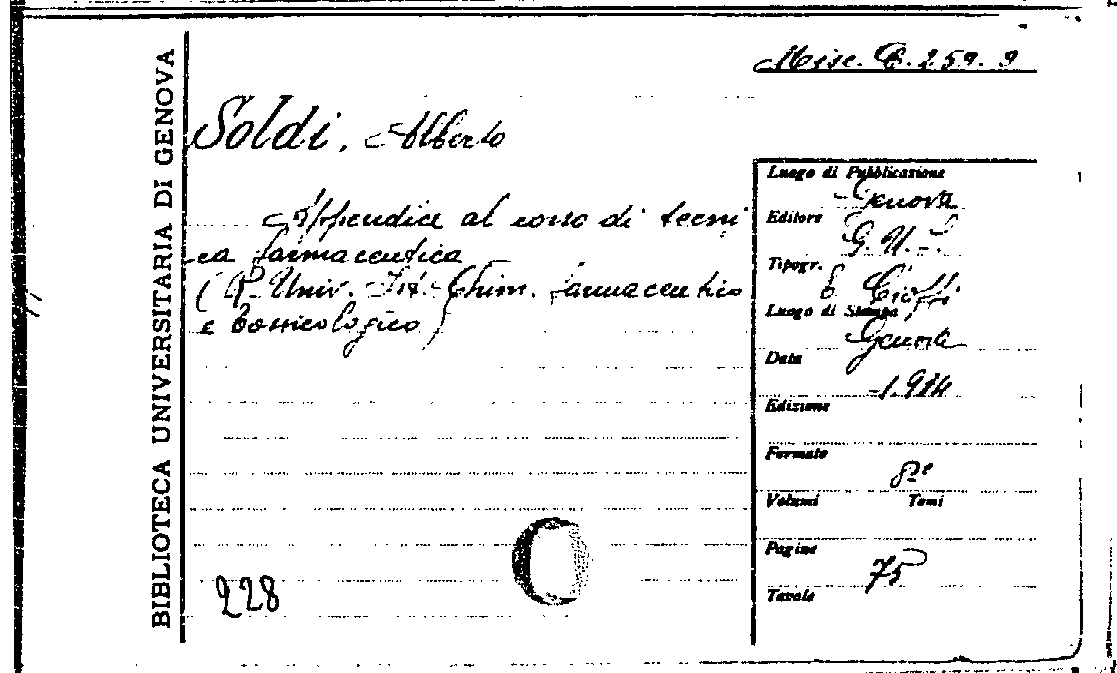 BIBLIOTECA UNIVERSITARIA DI GENOVA
Misc. C. 259. 9
Soldi, Alberto
Appendice al corso di tecni
ca farmaceutica
(R. Univ. Ist. Chim. farmaceutico
e tossicologico)
228
Luogo di Pubblicazione
Genova
Editore
G. U. F.
Tipogr.
E. Cioffi
Luogo di Stampa
Genova
Data
Edizione
Formato
8º
Volumi Tomi
Pagine
75
Tavole